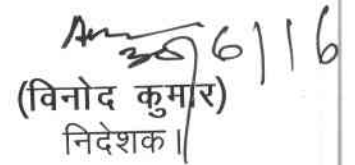 30/6/16
(विनोद कुमार)
निदेशक।